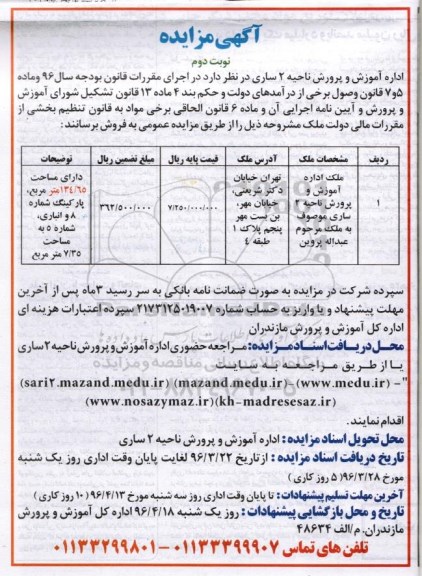 آگهی مزایده
نوبت دوم
اداره آموزش و پرورش ناحیه ۲ ساری در نظر دارد در اجرای مقررات قانون بودجه سال۹۶ وماده
۵و۷ قانون وصول برخی از درآمدهای دولت و حکم بند ۴ ماده ۱۳ قانون تشکیل شورای آموزش
و پرورش و آیین نامه اجرایی آن و ماده ۶ قانون الحاقی برخی مواد به قانون تنظیم بخشی از
مقررات مالی دولت ملک مشروحه ذیل را از طریق مزایده عمومی به فروش برسانند:
ردیف مشخصات ملک آدرس ملک قیمت پایه ریال مبلغ تضمین ریال توضیحات
۱
ملک اداره
آموزش و
پرورش ناحیه ۲
ساری موصوف
به ملک مرحوم
عبداله پروین
تهران خیابان
دکتر شریعتی،
خیابان مهر،
بن بست مهر
پنجم پلاک ۱
طبقه ۴
۷/۲۵۰/۰۰۰/۰۰۰
۳۶۲/۵۰۰/۰۰۰
دارای مساحت
۱۳۴/۶۵متر مربع،
پارکینگ شماره
۸ و انباری،
شماره ۵ به
مساحت
۷/۳۵ متر مربع
سپرده شرکت در مزایده به صورت ضمانت نامه بانکی به سر رسید ۳ماه پس از آخرین
مهلت پیشنهاد و یا واریز به حساب شماره ۲۱۷۳۱۲۵۰۱۹۰۰۷ سپرده اعتبارات هزینه ای
اداره کل آموزش و پرورش مازندران
محل دریافت اسناد مزایده: مراجعه حضوری اداره آموزش و پرورش ناحیه ۲ ساری
یا از طریق مراجعه به سایت
(sari۲.mazand.medu.ir) (mazand.medu.ir)-(www.medu.ir) -"
(www.nosazymaz.ir)(kh-madresesaz.ir)
اقدام نمایند.
محل تحویل اسناد مزایده : اداره آموزش و پرورش ناحیه ۲ ساری
تاریخ دریافت اسناد مزایده : از تاریخ ۹۶/۳/۲۲ لغایت پایان وقت اداری روز یک شنبه
مورخ ۹۶/۳/۲۸( ۵ روز کاری )
آخرین مهلت تسلیم پیشنهادات : تا پایان وقت اداری روز سه شنبه مورخ ۹۶/۴/۱۳ ( ۱۰ روز کاری )
تاریخ و محل بازگشایی پیشنهادات : روز یک شنبه ۹۶/۴/۱۸ اداره کل آموزش و پرورش
مازندران. م/الف ۴۸۶۳۴
تلفن های تماس ۰۱۱۳۳۳۹۹۹۰۷-۰۱۱۳۳۲۹۹۸۰۱